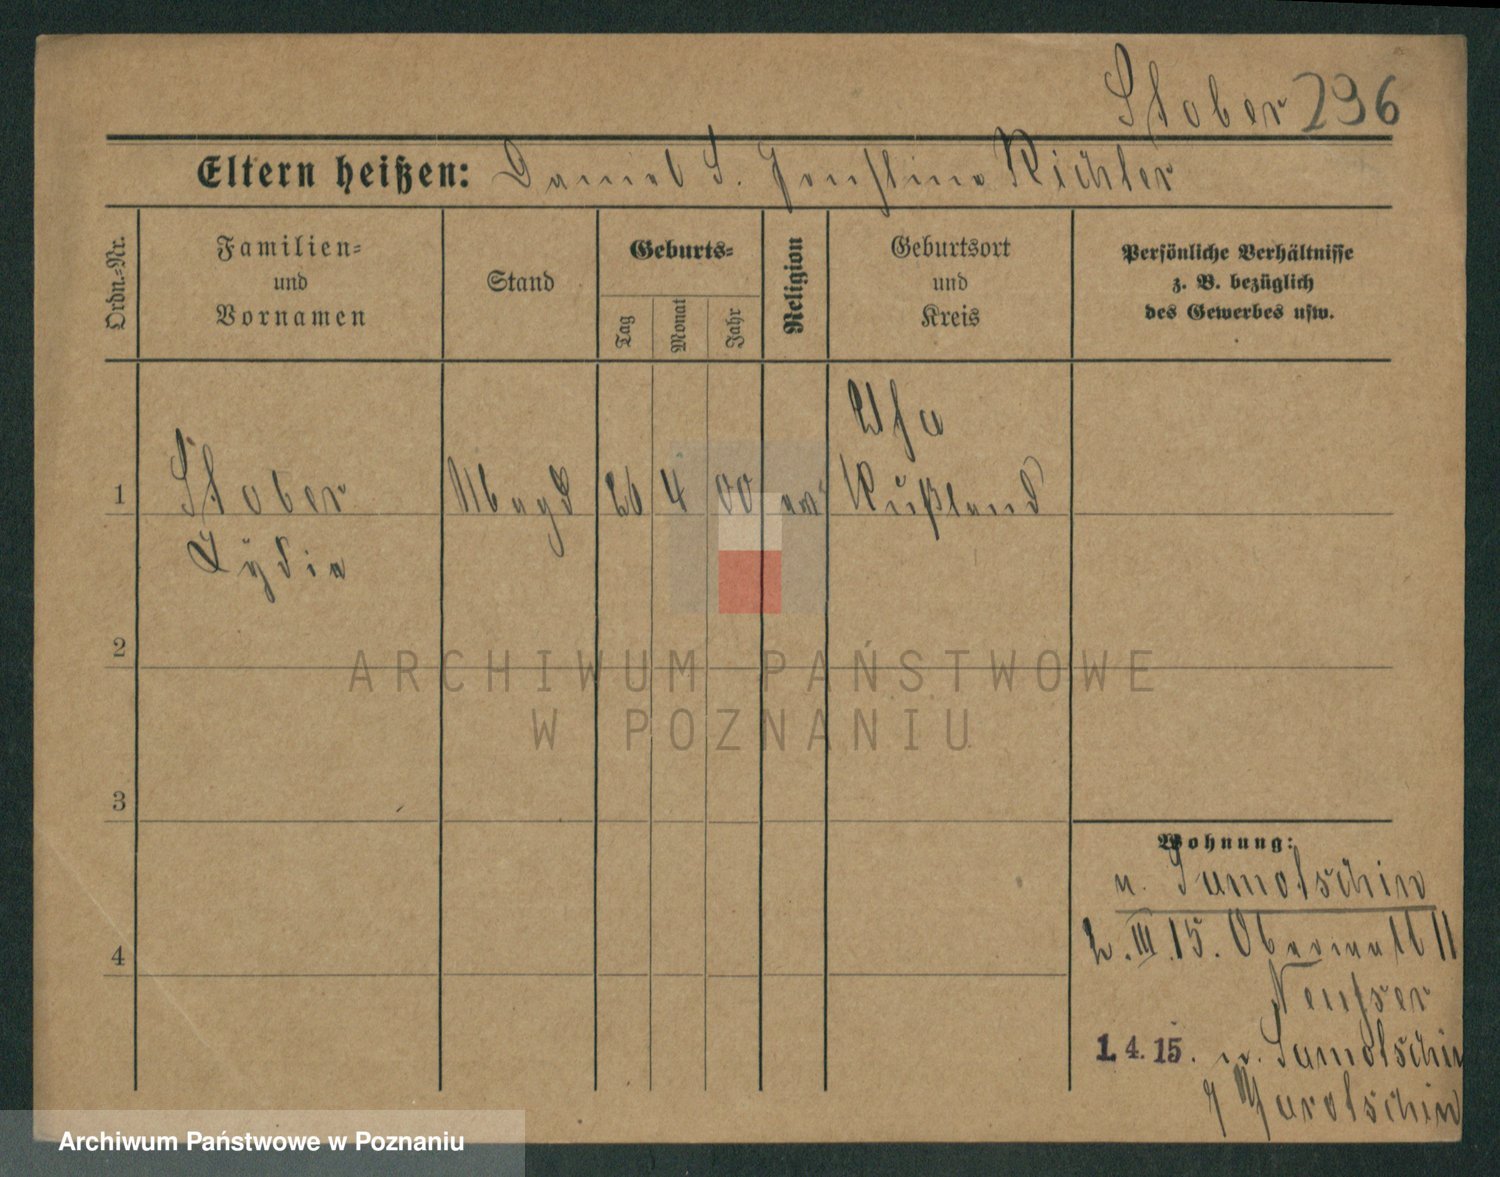 Stober 296
Eltern heißen: Daniel S. Richter
Ordn.=Nr.
Familien=
und
Vornamen
Stand
Geburts=
Tag
Monat
Jahr
Religion
Geburtsort
und
Kreis
Persönliche Verhältnisse
z. B. bezüglich
des Gewerbes usw.
Ufa
1 Stober Magd 26 4 00 ev Rußland
Lydia
2
3
4
Wohnung:
n. Samotschin
2. III. 15.
1. 4. 15. n. Samotschin
ARCHIWUM PAŃSTWOWE
W POZNANIU
Archiwum Państwowe w Poznaniu